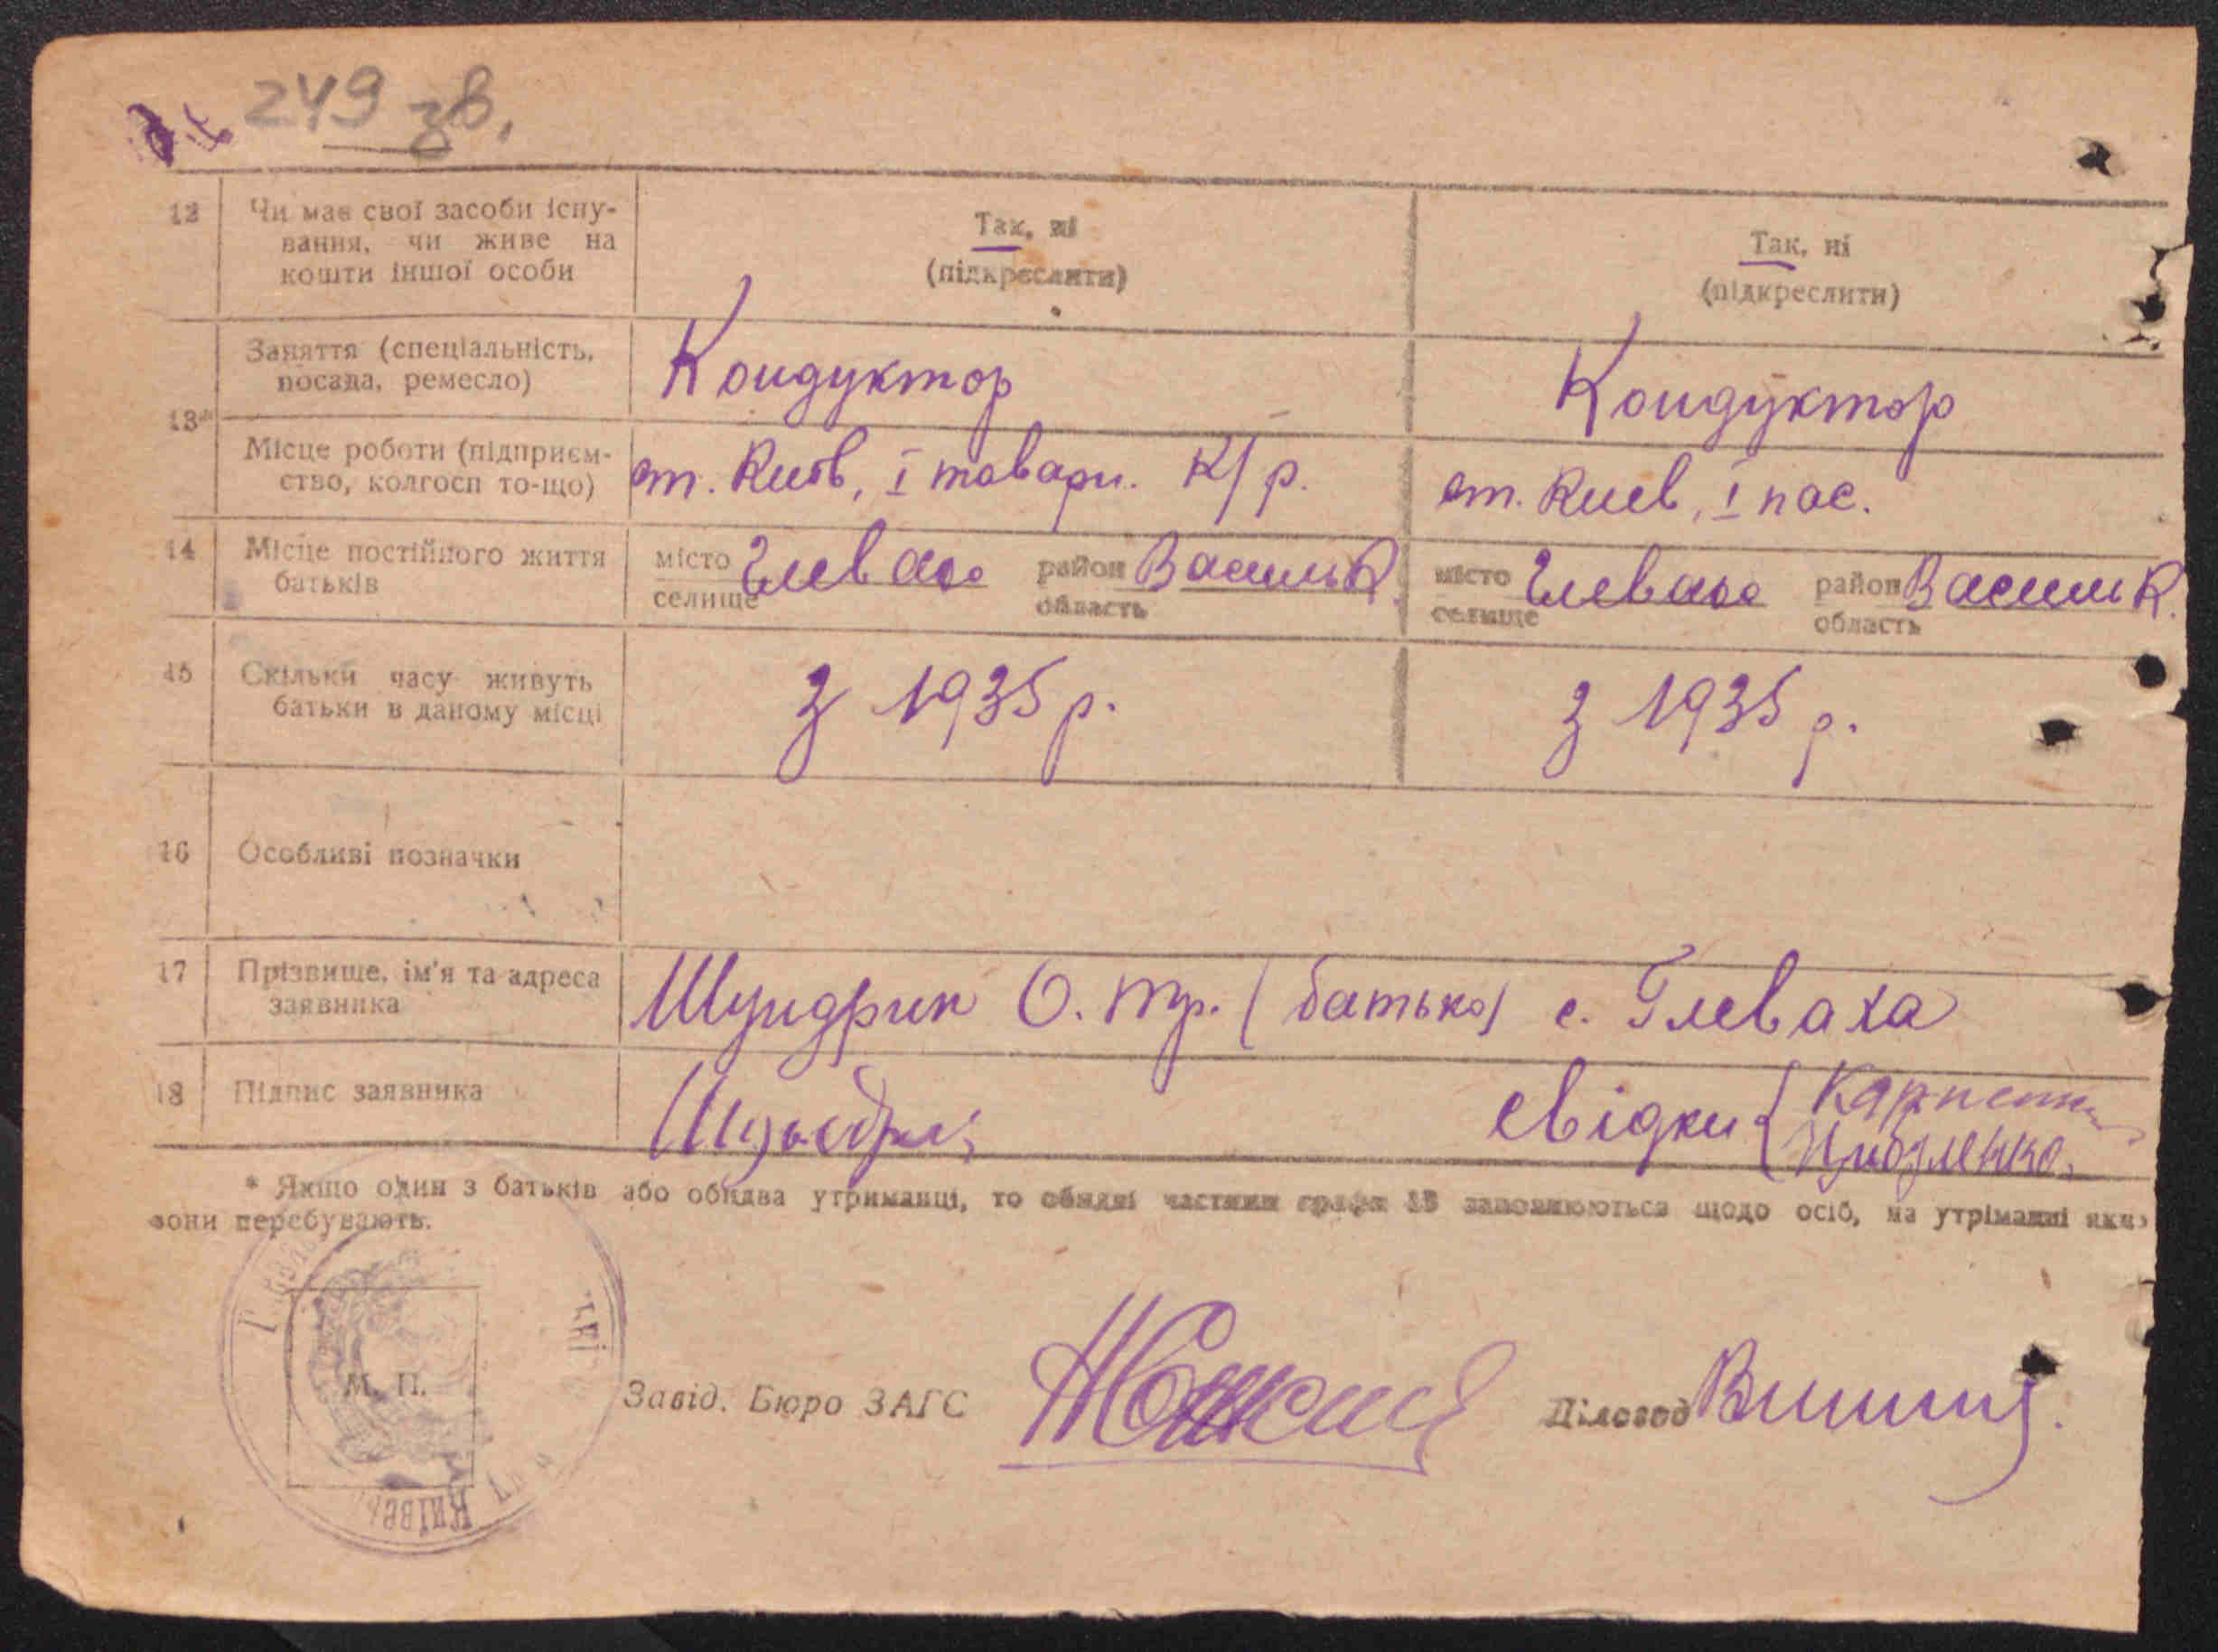 249 зв.
12 Чи має свої засоби існу-
вання, чи живе на
кошти іншої особи
Так, ні
(підкреслити)
Так, ні
(підкреслити)
13*
Заняття (спеціальність,
посада, ремесло)
Кондуктор
Кондуктор
Місце роботи (підприєм-
ство, колгосп то-що)
ст. Київ, I товарн. К/р.
ст. Киев, I пас.
14 Місце постійного життя
батьків
місто
селище
Глеваха
район Васильк.
область
місто
селище
Глеваха
район Васильк.
область
15 Скільки часу живуть
батьки в даному місці
З 1935 р.
З 1935 р.
16 Особливі позначки
17 Прізвище, ім'я та адреса
заявника
Шундрик О. Тр. (батько) с. Глеваха
18 Підпис заявника
свідки
* Якщо один з батьків або обидва утриманці, то обидві частини графи 13 заповнюються щодо осіб, на утріманні яких
вони перебувають.
М. П.
Завід. Бюро ЗАГС
Діловод
Київсь